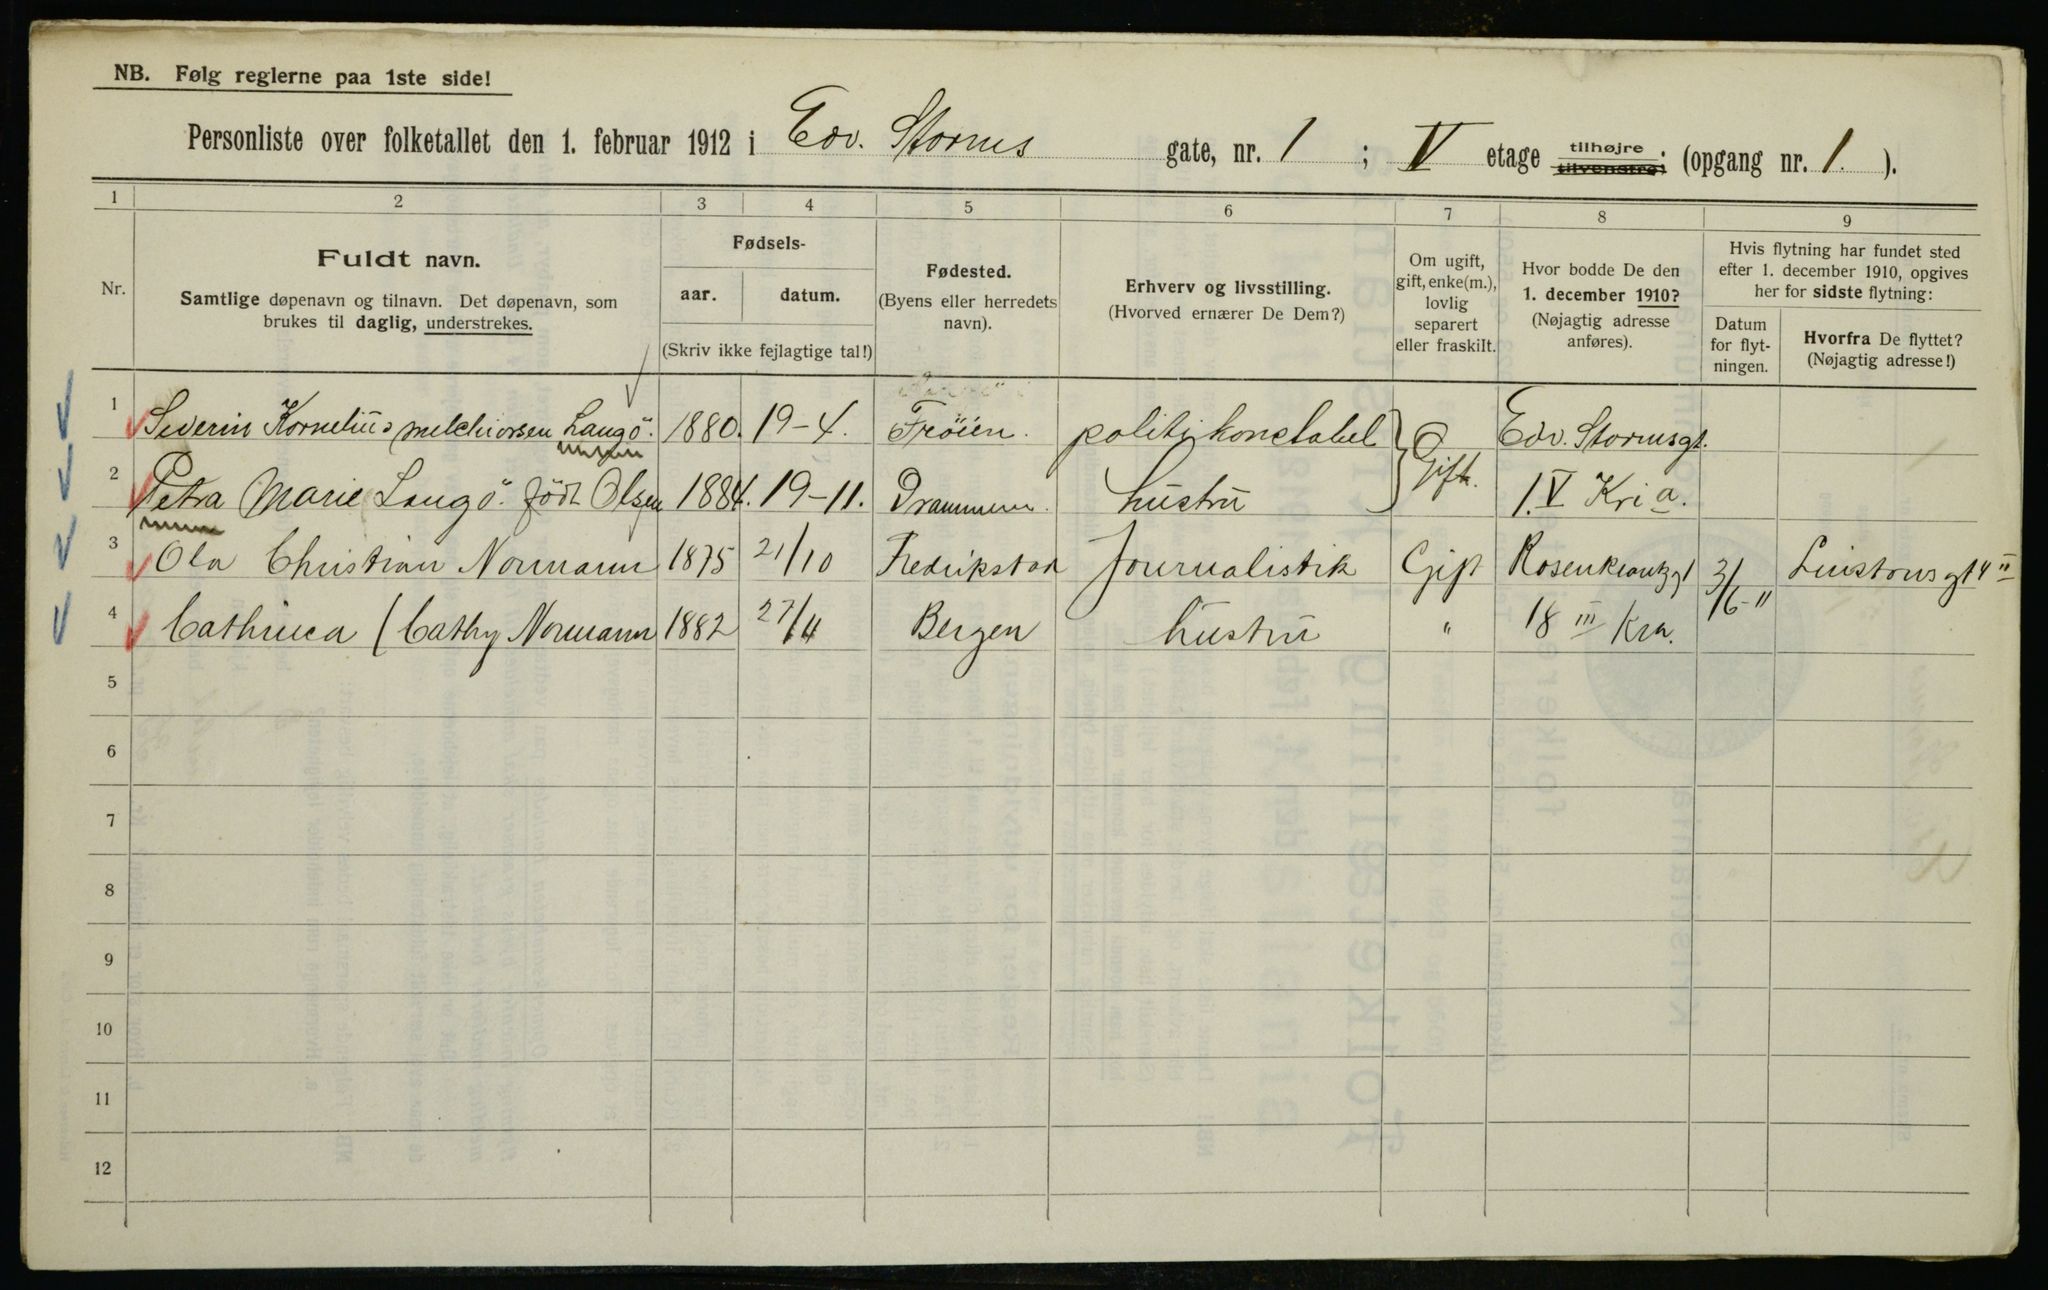 NB. Følg reglerne paa 1ste side!
Personliste over folketallet den 1. februar 1912 i Edv. Storms gate, nr. 1 ; V etage tilhøjre tilvenstre; (opgang nr. 1. ).
1 2 3 4 5 6 7 8 9
Nr.
Fuldt navn.
Samtlige døpenavn og tilnavn. Det døpenavn, som
brukes til daglig, understrekes.
Fødsels-
aar. datum.
(Skriv ikke fejlagtige tal!)
Fødested.
(Byens eller herredets
navn).
Erhverv og livsstilling.
(Hvorved ernærer De Dem?)
Om ugift,
gift, enke(m.),
lovlig
separert
eller fraskilt.
Hvor bodde De den
1. december 1910?
(Nøjagtig adresse
anføres).
Hvis flytning har fundet sted
efter 1. december 1910, opgives
her for sidste flytning:
Datum
for flyt-
ningen.
Hvorfra De flyttet?
(Nøjagtig adresse!)
1 Severin Kornelius melchiorsen Langö. 1880. 19-4. Fröien. politikonstabel Gift. Edv. Stormsgt.
2 Petra Marie Langö. födt Olsen 1884. 19-11. Drammen. hustru 1. V Kria.
3 Ola Christian Normann 1875 21/10 Fredrikstad Journalistik Gift Rosenkrantzgt 3/6-11 Linstowsgt 4 II
4 Cathinca (Cathy Normann 1882 27/4 Bergen hustru " 18 III Kra.
5
6
7
8
9
10
11
12